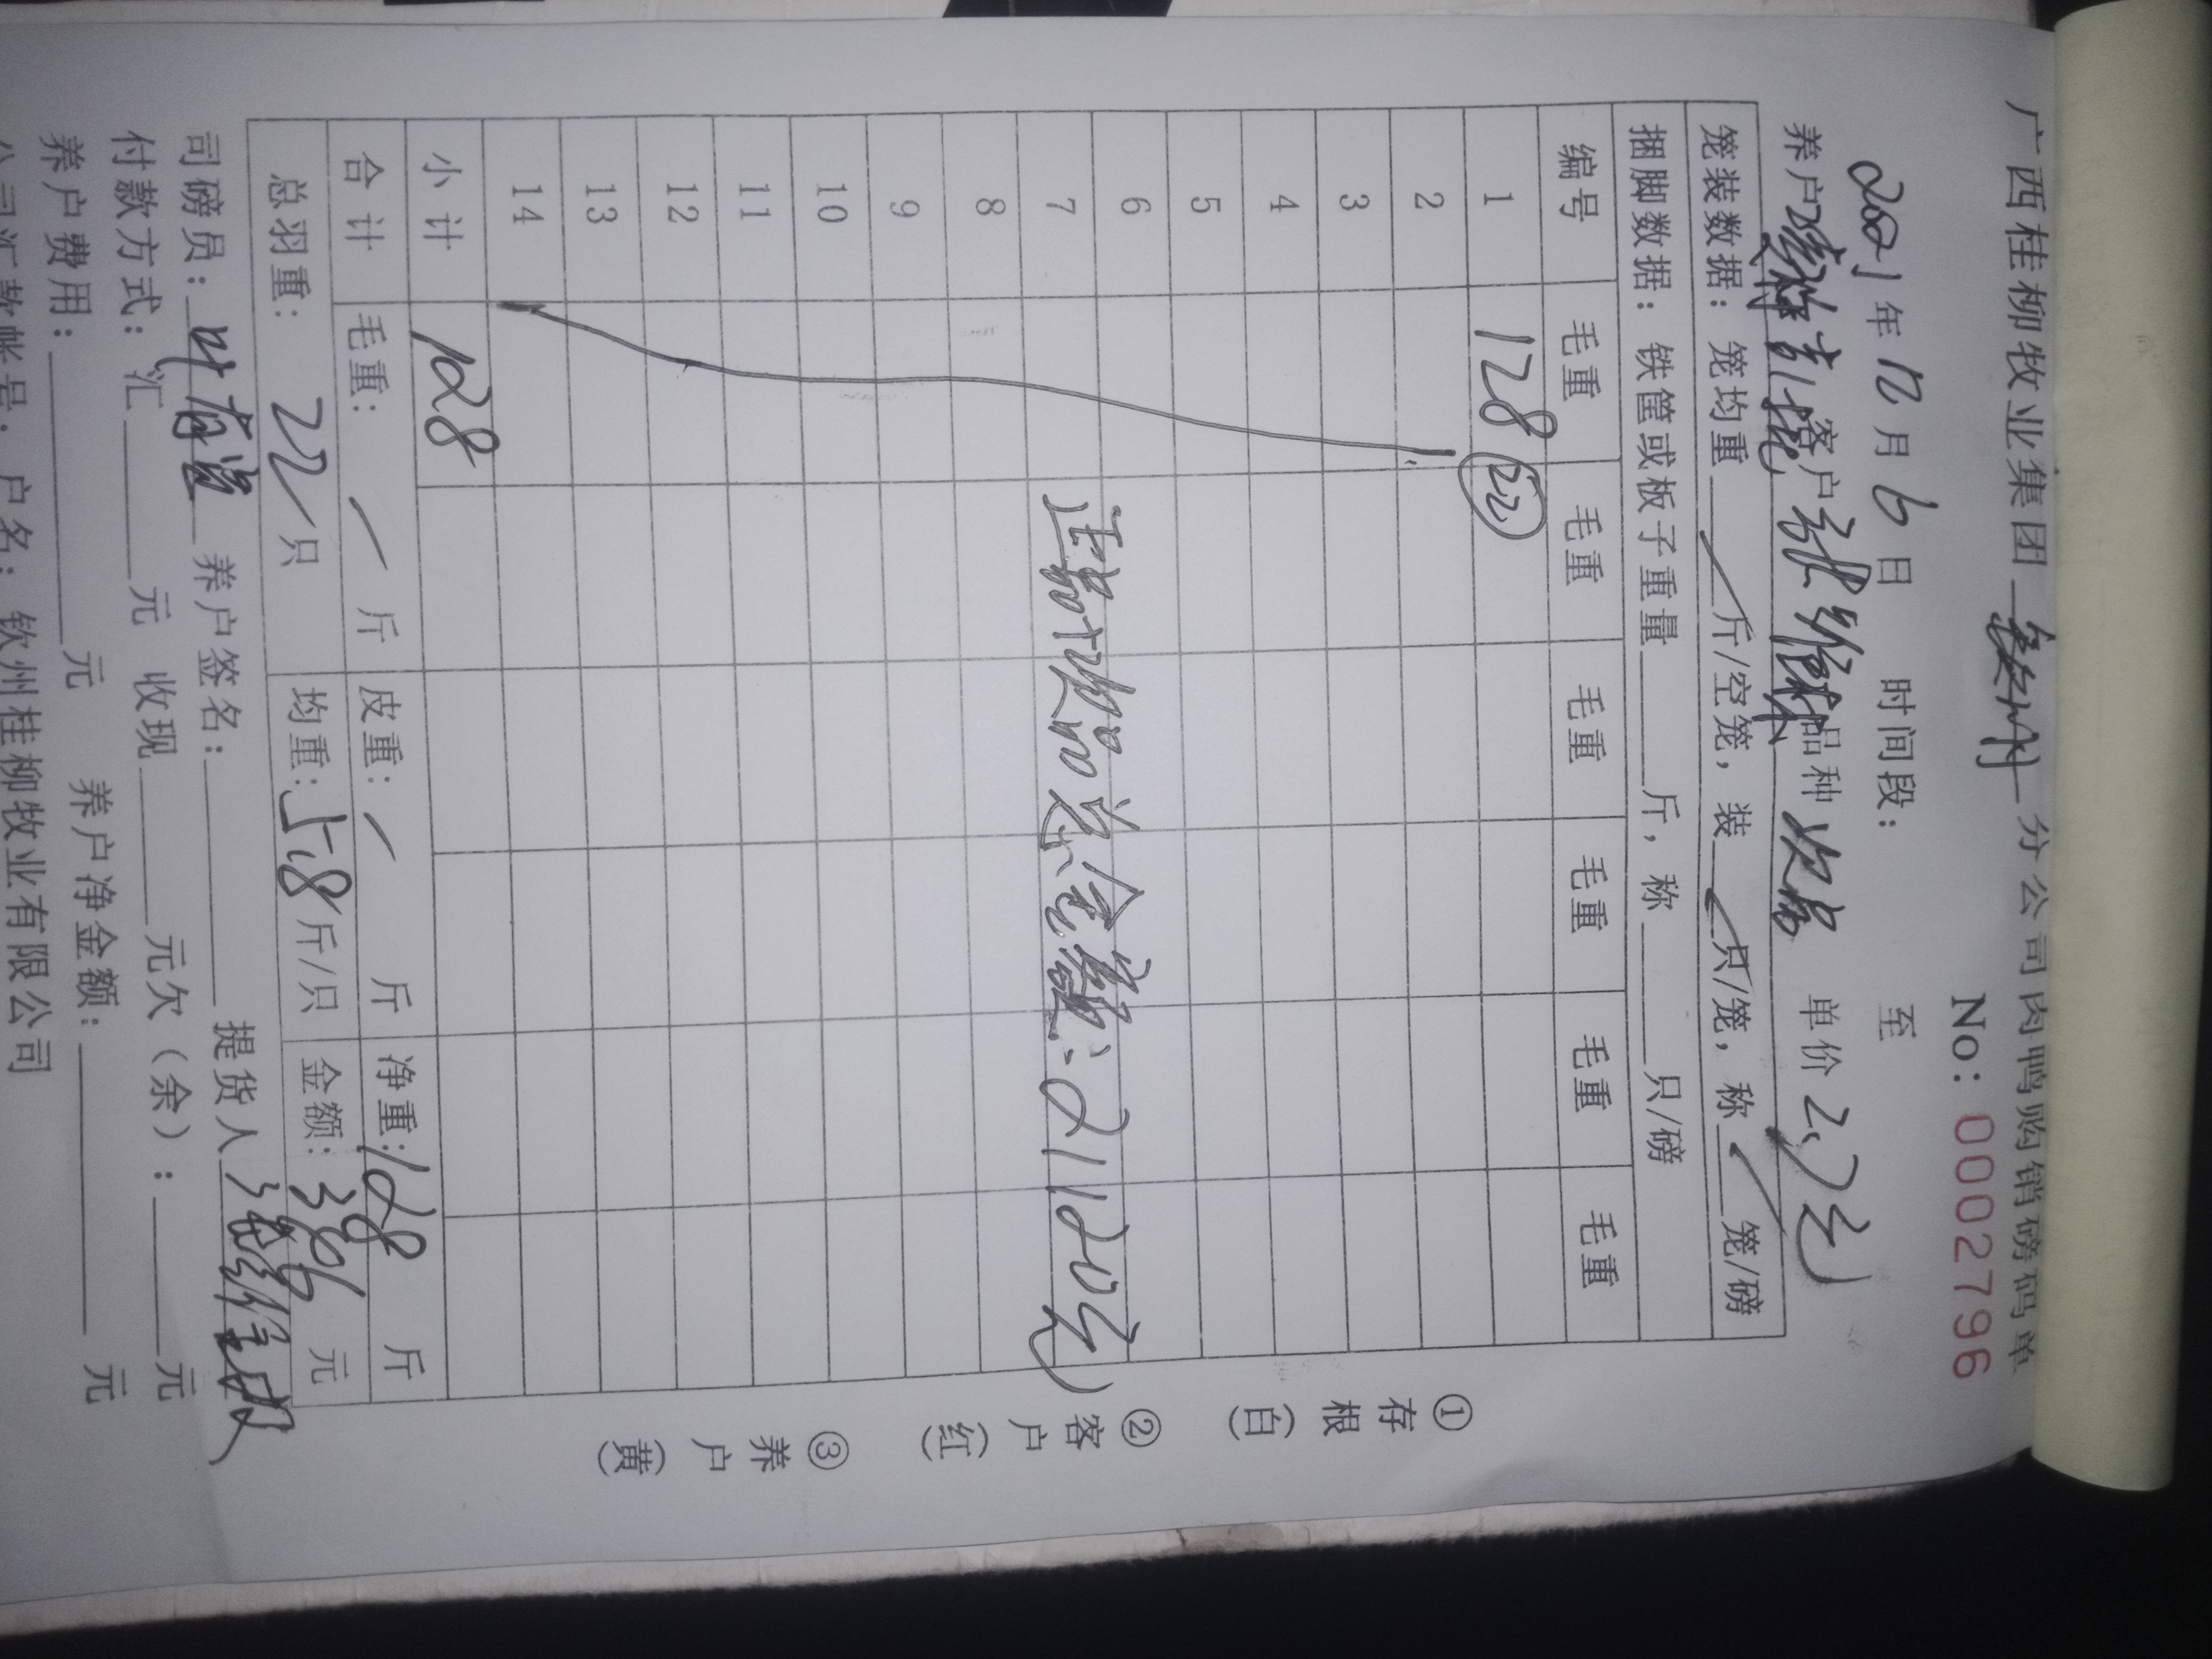 广西桂柳牧业集团 钦州 分公司肉鸭购销磅码单
No: 0002796
2021年12月6日 时间段: 至
养户 客户 张 品种 次品 单价 2.7元
笼装数据: 笼均重 / 斤/空笼, 装 / 只/笼, 称 / 笼/磅
捆脚数据: 铁筐或板子重量 斤, 称 只/磅
编号 毛重 毛重 毛重 毛重 毛重 毛重
1 128 (22)
2
3
4
5
6
7 正品+次品总金额: 21120元
8
9
10
11
12
13
14
小计 128
合计 毛重: / 斤 皮重: / 斤 净重: 128 斤
总羽重: 22 只 均重: 5.8 斤/只 金额: 346 元
司磅员: 叶 养户签名: 提货人 张
付款方式: 汇 元 收现 元欠(余): 元
养户费用: 元 养户净金额: 元
公司汇款帐号: 户名: 钦州桂柳牧业有限公司
①存根(白) ②客户(红) ③养户(黄)